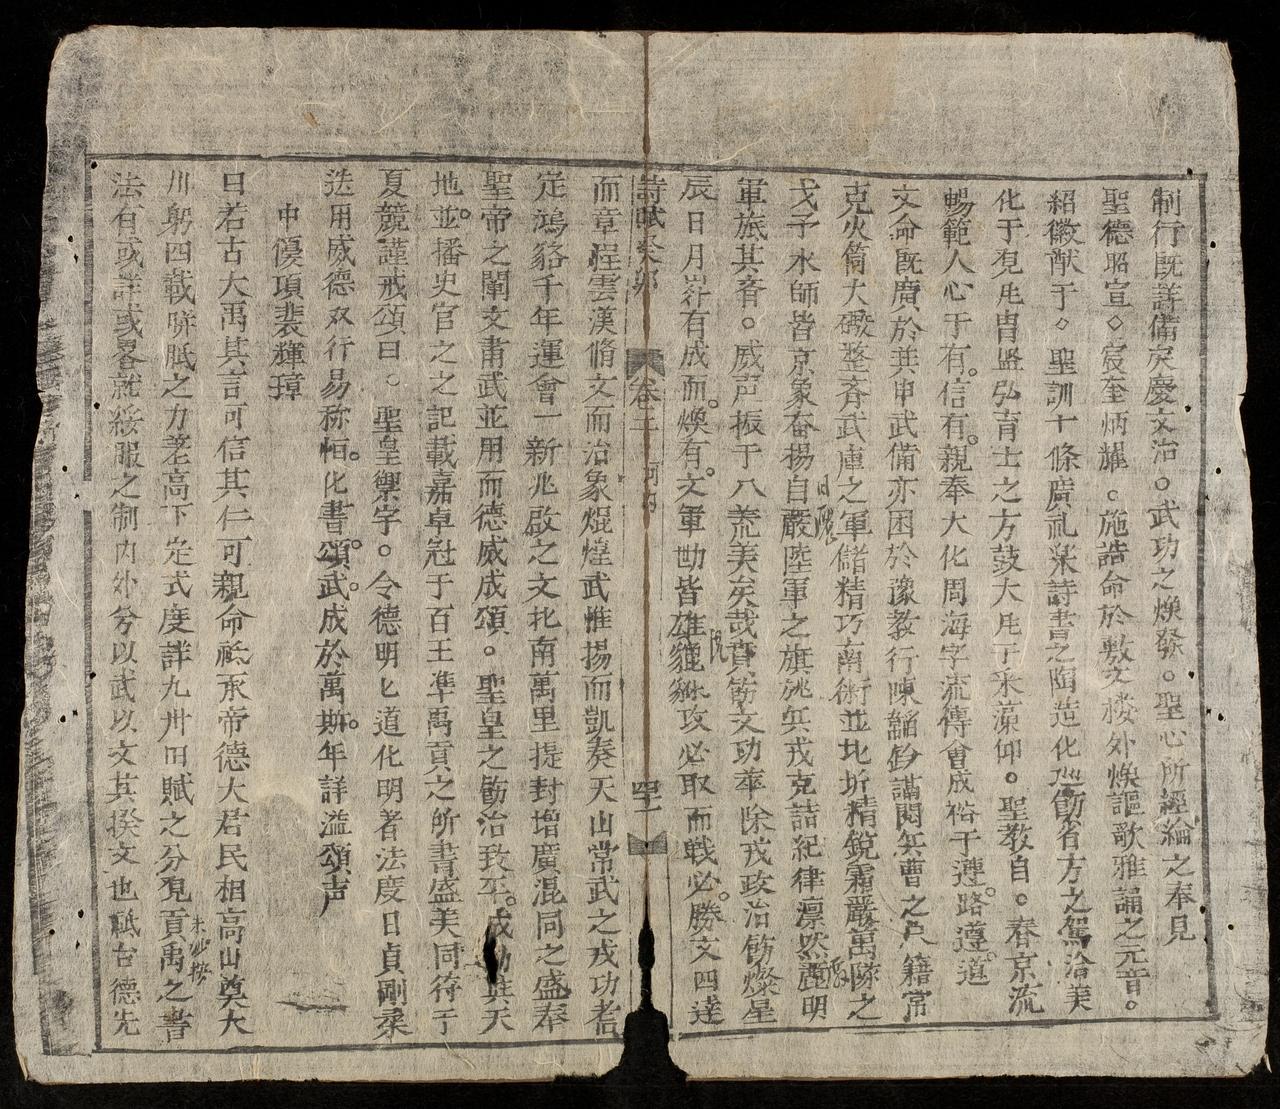 制行既詳備戾慶文治○武功之煥發○聖心所經綸之奉見
聖德昭宣○宸奎炳耀○施誥命於敷文楼外煥謳歌雅誦之元音○
紹徽猷于○聖訓十條廣礼楽詩書之陶造化廵省方之駕洽美
化于有弘育士之方鼓大于采蘋仰○聖教自○春京流
暢範人心于有信有親奉大化周海宇流傳會成裕于遵路遵道
文命既廣於共申武備亦困於豫教行陳韜鈐講閱兵曹之户籍常
克火筒大礮整斉武庫之軍儲精巧南術並北圻精銳霜嚴萬隊之
戈予水師皆京象奋揚自嚴陸軍之旗兵戎克詰紀律凛然明
軍旅其音○威声振于八荒美矣哉文功率除戎政治飭燦星
辰日月有成而煥有文軍勋皆雄貔貅攻必取而戦必勝文四達
詩賦癸卯 卷二 河内 四十一
而章淫雲漢脩文而治象焜煌武惟揚而凱奏天山常武之戎功耆
定鴻貉千年運會一新兆啟之文北南萬里提封增廣混同之盛奉
聖帝之闡文肅武並用而德威成頌○聖皇之飭治致平成勋共天
地並播史官之之記載嘉卓冠于百王準禹貢之所書盛美同符于
夏競謹戒頌曰○聖皇禦宇○令德明匕道化明著法度日貞剛柔
迭用威德双行易称恒化書頌武成於萬斯年詳溢頌声
中優項裴輝璋
曰若古大禹其言可信其仁可親命祗承帝德大君民相高山奠大
川躬四載胼胝之力茗高下定式度詳九州田賦之分見貢禹之書
法有或詳或畧就綏服之制内外兮以武以文其揆文也祗台德先